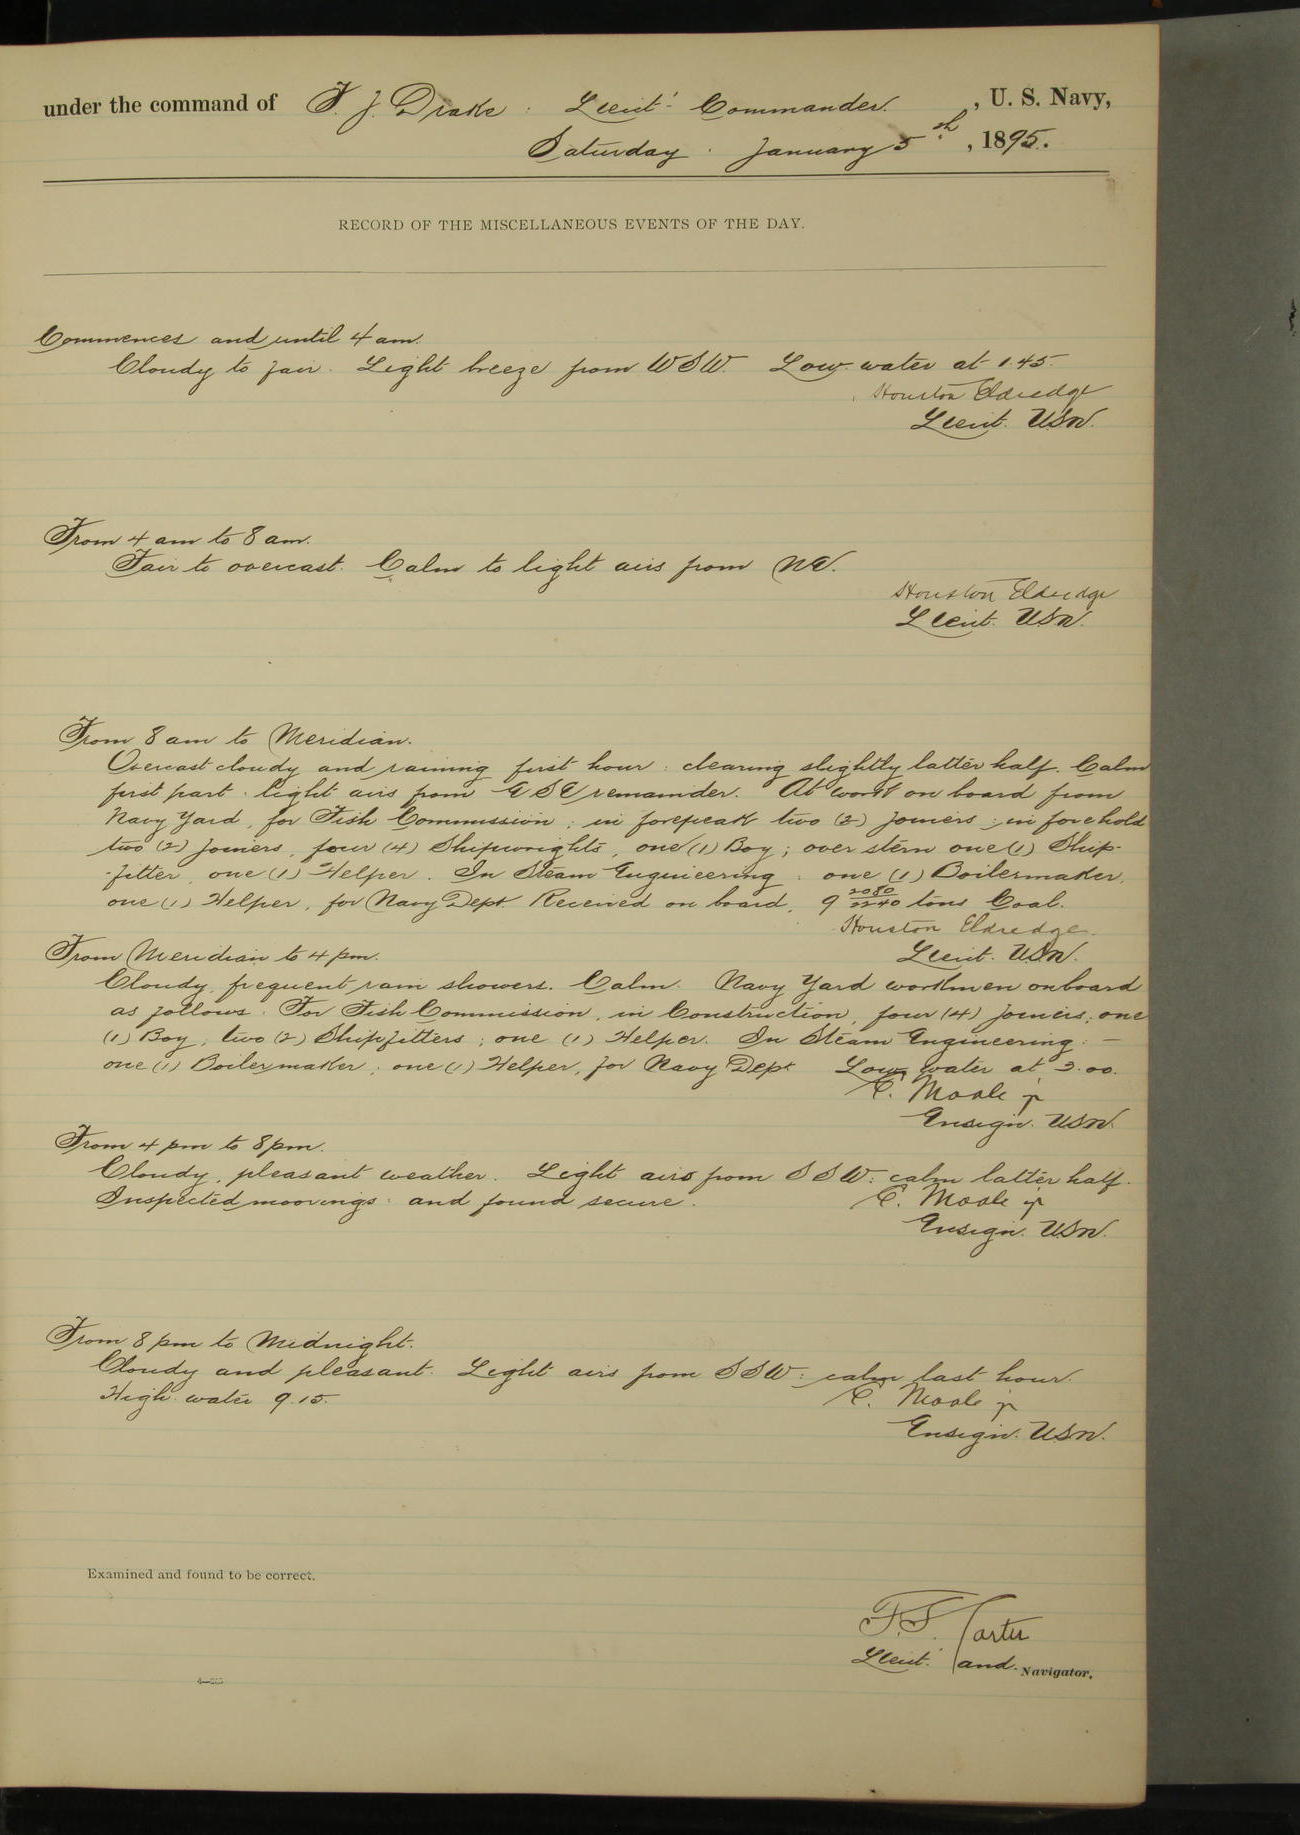 under the command of F. J. Drake. Lieut. Commander. , U. S. Navy,
Saturday. January 5th, 1895.
RECORD OF THE MISCELLANEOUS EVENTS OF THE DAY.
Commences and until 4 am.
Cloudy to fair. Light breeze from WSW. Low water at 1.45.
Houston Eldredge
Lieut. USN.
From 4 am to 8 am.
Fair to overcast. Calm to light airs from NE.
Houston Eldredge
Lieut. USN.
From 8 am to Meridian.
Overcast cloudy and raining first hour: clearing slightly latter half. Calm
first part. light airs from ESE remainder. At work on board from
Navy Yard, for Fish Commission; in forepeak two (2) joiners; in forehold
two (2) joiners, four (4) Shipwrights, one (1) Boy; over stern one (1) Ship-
-fitter, one (1) Helper. In Steam Engineering: one (1) Boilermaker,
one (1) Helper, for Navy Dept. Received on board, 9 2080/2240 tons Coal.
Houston Eldredge.
Lieut. USN.
From Meridian to 4 pm.
Cloudy, frequent rain showers. Calm. Navy Yard workmen onboard
as follows. For Fish Commission, in Construction, four (4) joiners; one
(1) Boy, two (2) Shipfitters; one (1) Helper. In Steam Engineering: —
one (1) Boilermaker; one (1) Helper, for Navy Dept Low water at 2.00.
C. Moale jr
Ensign. USN.
From 4 pm to 8 pm.
Cloudy, pleasant weather. Light airs from SSW: calm latter half.
Inspected moorings and found secure.
C. Moale jr
Ensign. USN.
From 8 pm to Midnight.
Cloudy and pleasant. Light airs from SSW: calm last hour.
High water 9.15.
C. Moale jr
Ensign. USN.
Examined and found to be correct.
F. S. Carter
Lieut. and Navigator.